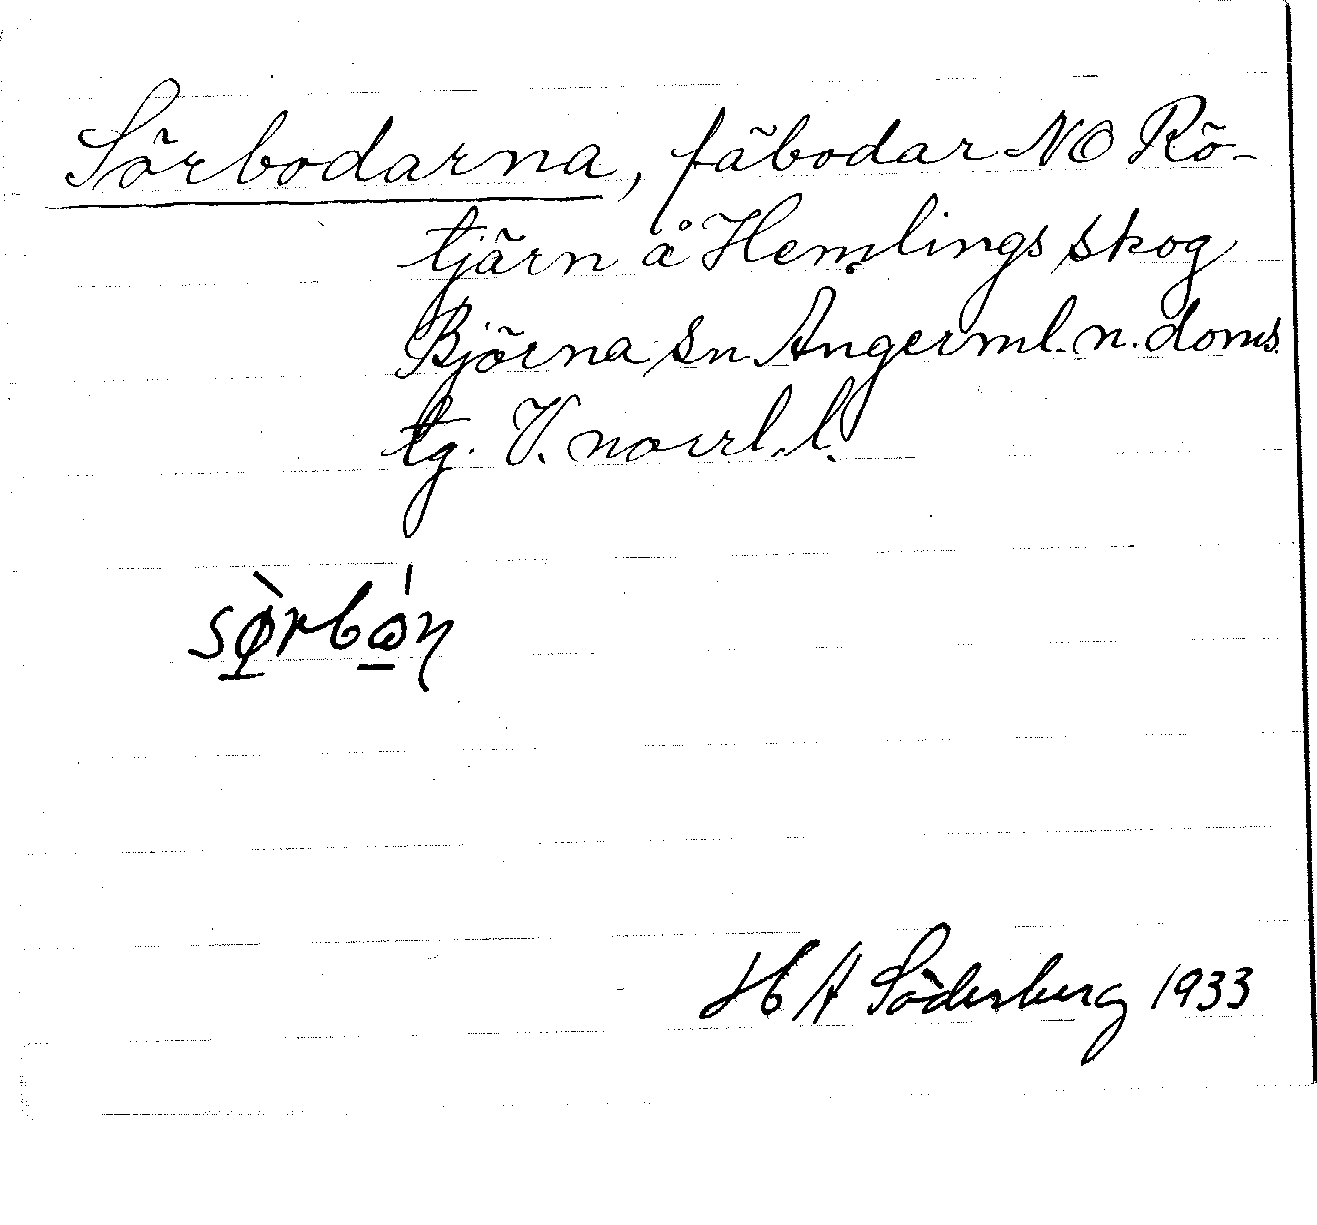 Sörbodarna, fäbodar NO Rö-
tjärn å Hemlings skog
Björna sn. Ångerml. n. doms.
tg. V. norrl. l.
sø̠̀rbώ̠ɳ
H A Söderberg 1933